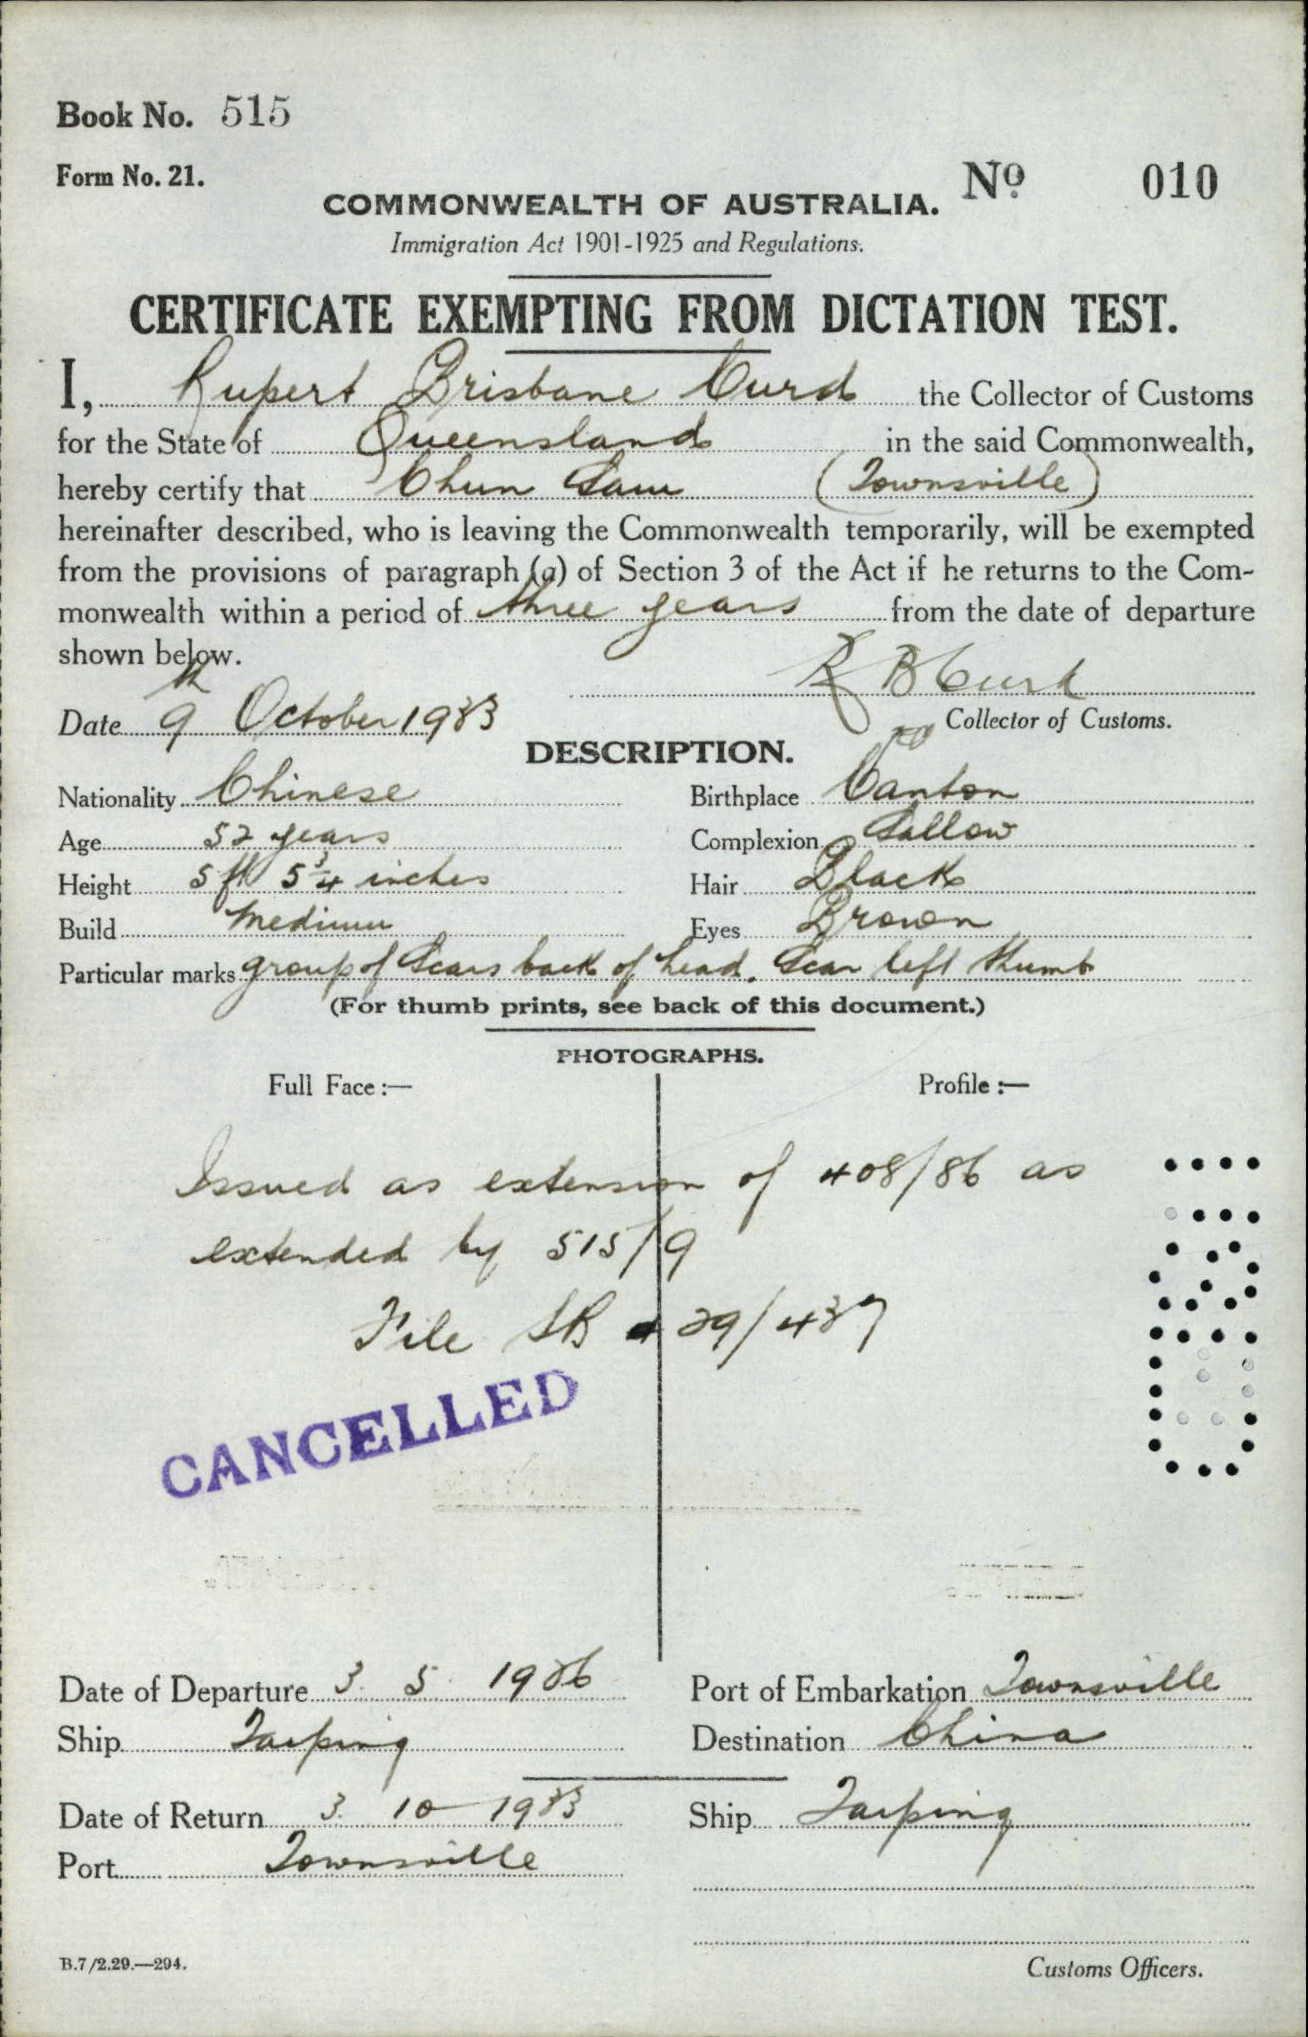 Book No. 515
Form No. 21.
No 010
COMMONWEALTH OF AUSTRALIA.
Immigration Act 1901-1925 and Regulations.
CERTIFICATE EXEMPTING FROM DICTATION TEST.
I, Rupert Brisbane Curd the Collector of Customs
for the State of Queensland in the said Commonwealth,
hereby certify that Chun Sam (Townsville)
hereinafter described, who is leaving the Commonwealth temporarily, will be exempted
from the provisions of paragraph (a) of Section 3 of the Act if he returns to the Com-
monwealth within a period of three years from the date of departure
shown below.
R B Curd
Date 9th October 1933
Collector of Customs.
DESCRIPTION.
Nationality Chinese
Birthplace Canton
Age 52 years
Complexion Sallow
Height 5 ft 5 3/4 inches
Hair Black
Build Medium
Eyes Brown
Particular marks group of Scars back of head. Scar left thumb
(For thumb prints, see back of this document.)
PHOTOGRAPHS.
Full Face :—
Profile :—
Issued as extension of 408/86 as
extended by 515/9
File SB 29/437
CANCELLED
Date of Departure 3. 5. 1926
Port of Embarkation Townsville
Ship Taiping
Destination China
Date of Return 3. 10 1933
Ship Taiping
Port Townsville
B.7/2.29.—294.
Customs Officers.